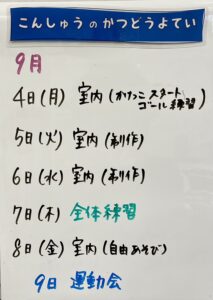 こんしゅう の かつどうよてい
9月
4日(月) 室内(かけっこ スタート
ゴール練習)
5日(火) 室内(制作)
6日(水) 室内(制作)
7日(木) 全体練習
8日(金) 室内(自由あそび)
9日 運動会